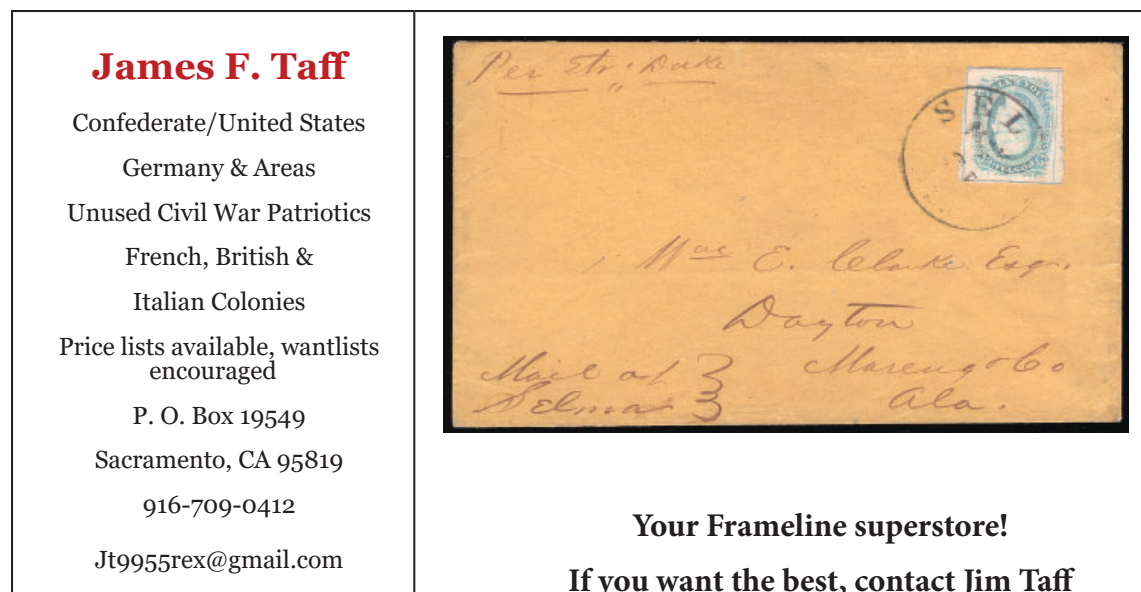 James F. Taff
Confederate/United States
Germany & Areas
Unused Civil War Patriotics
French, British &
Italian Colonies
Price lists available, wantlists
encouraged
P. O. Box 19549
Sacramento, CA 95819
916-709-0412
Jt9955rex@gmail.com
Per Str. "Duke
SEL
E. Clarke Esqr.
Dayton
Marengo Co
Ala.
Mail at
Selma
Your Frameline superstore!
If you want the best, contact Jim Taff